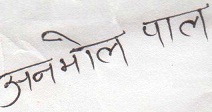 अनमोल पाल